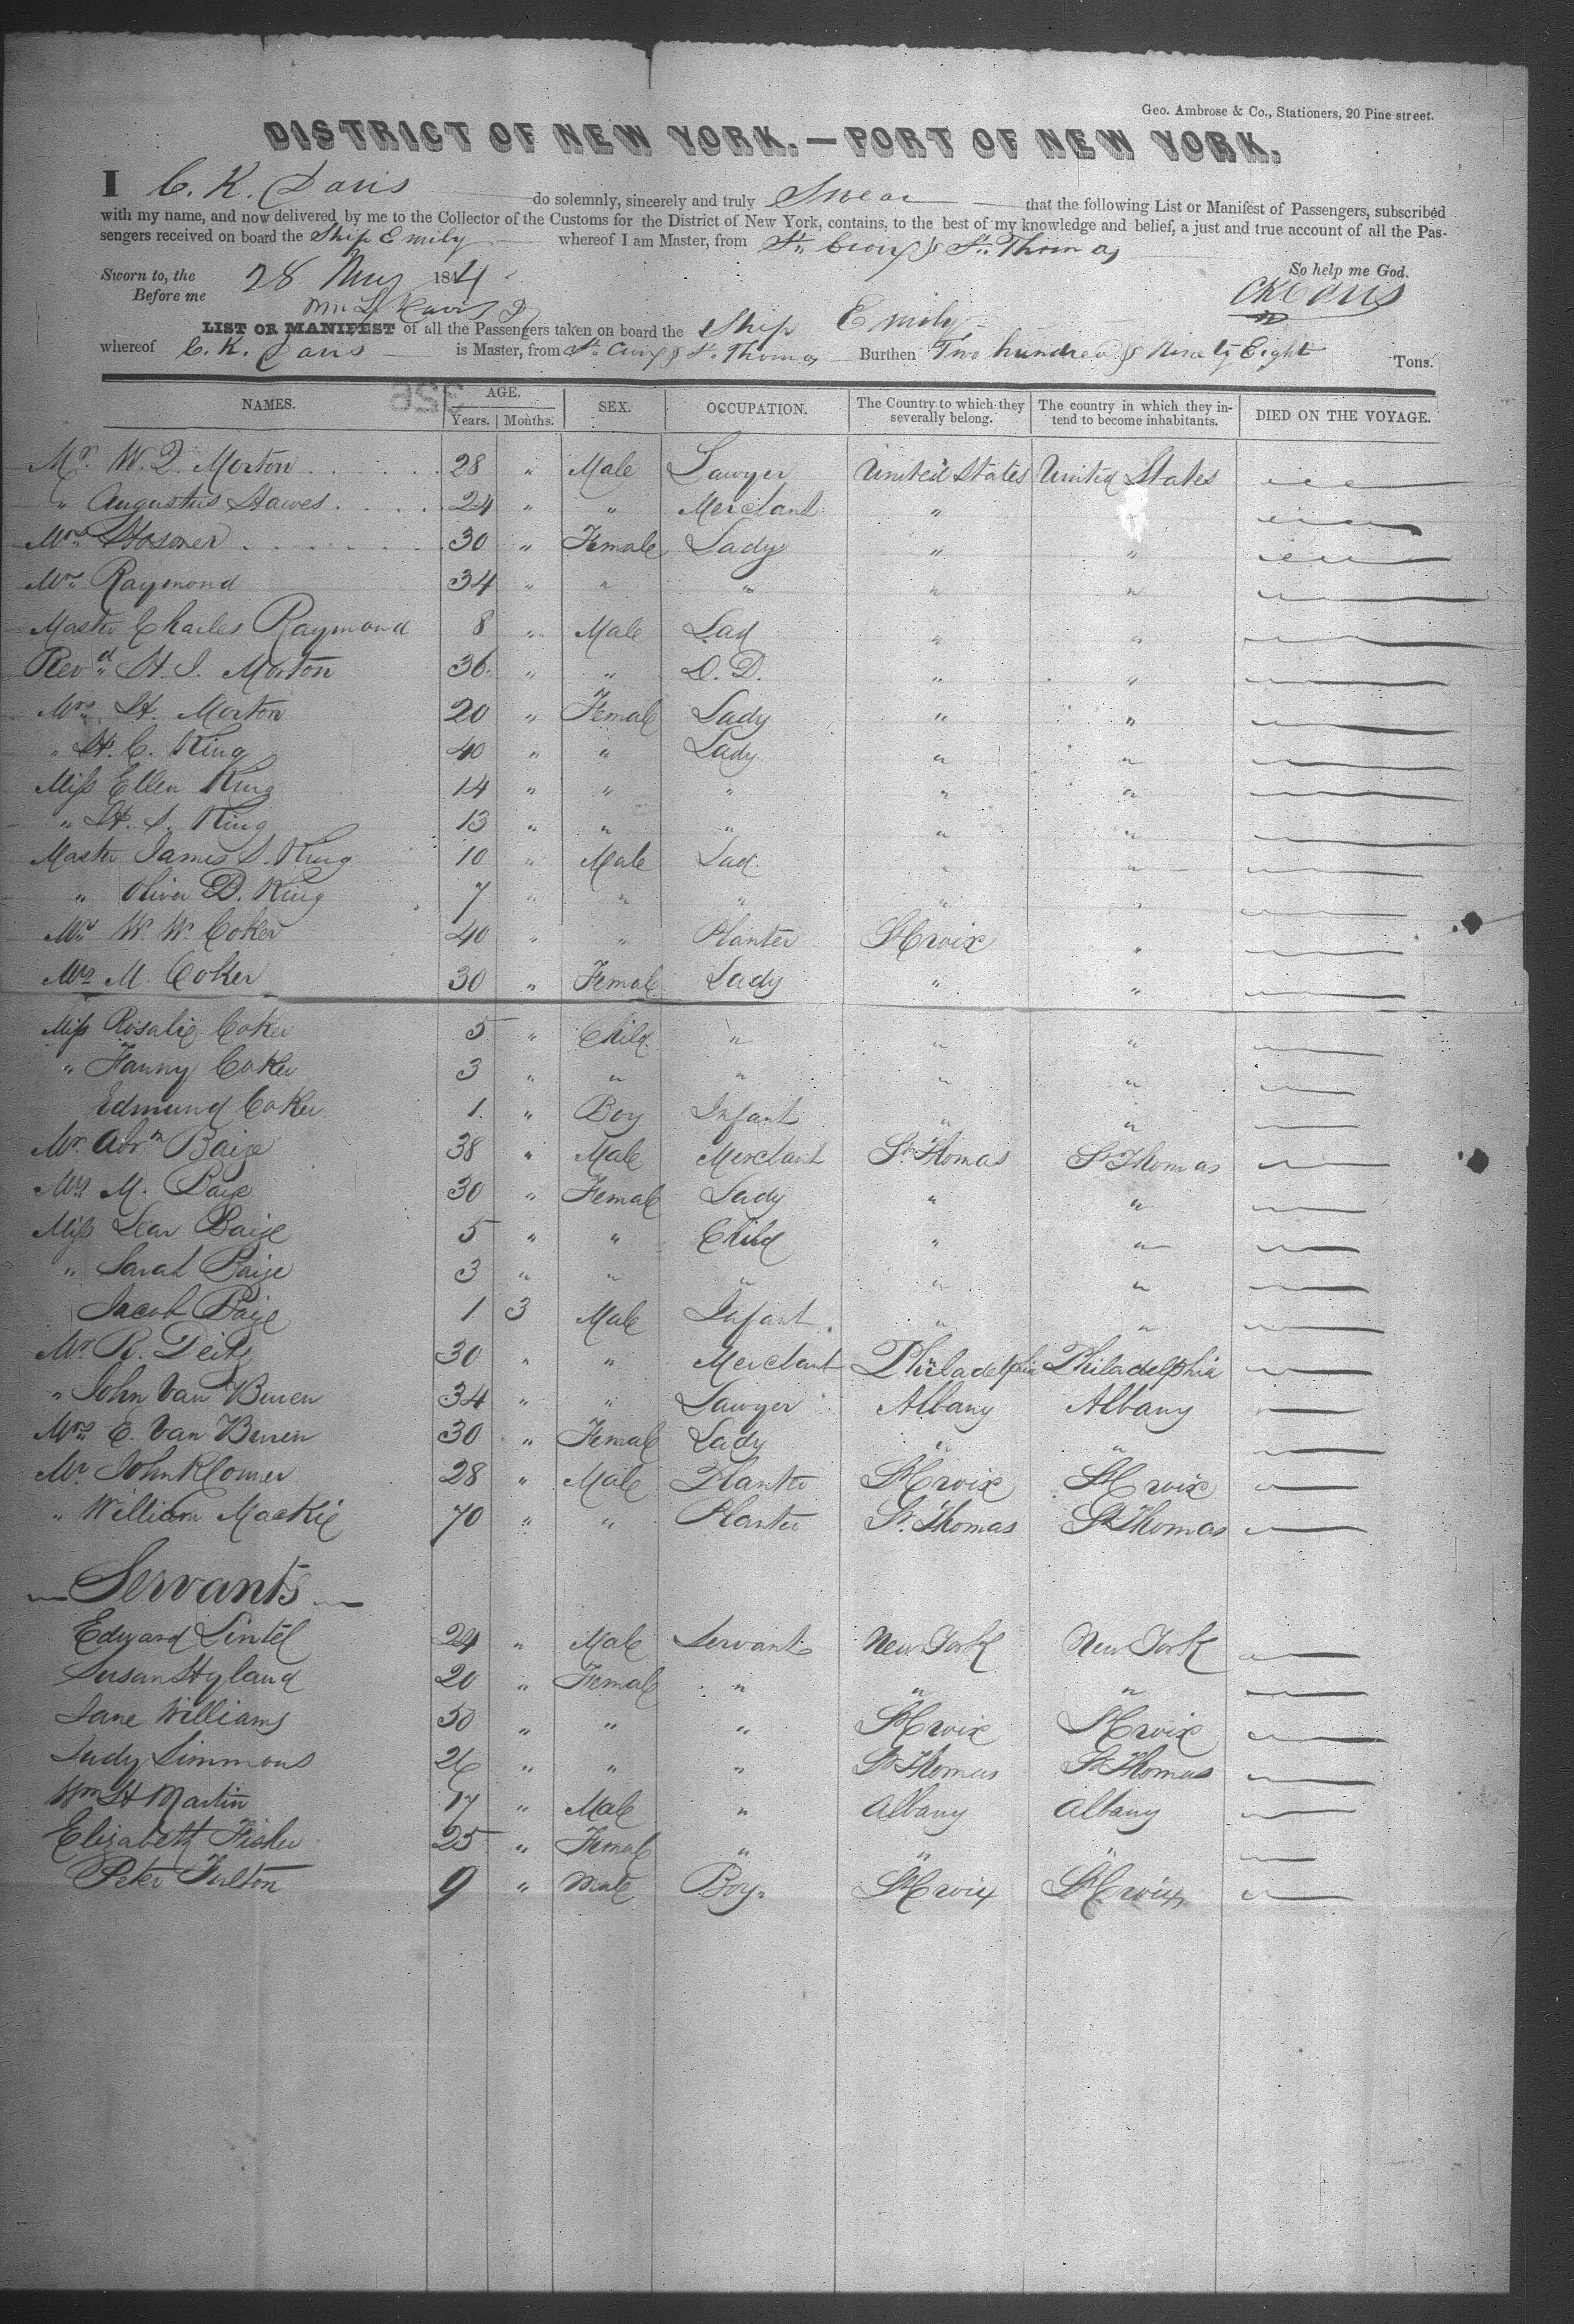 Geo. Ambrose & Co., Stationers, 20 Pine-street.
DISTRICT OF NEW YORK.—PORT OF NEW YORK.
I C. K. Davis do solemnly, sincerely and truly Swear that the following List or Manifest of Passengers, subscribed
with my name, and now delivered by me to the Collector of the Customs for the District of New York, contains, to the best of my knowledge and belief, a just and true account of all the Pas-
sengers received on board the Ship Emily whereof I am Master, from St. Croix & St. Thomas
Sworn to, the 28 May 1844 So help me God.
Before me CK Davis
LIST OR MANIFEST of all the Passengers taken on board the Ship Emily
whereof C. K. Davis is Master, from St. Croix & St. Thomas Burthen Two hundred & Ninety Eight Tons.
NAMES. AGE. SEX. OCCUPATION. The Country to which they severally belong. The country in which they in-tend to become inhabitants. DIED ON THE VOYAGE.
Years. Months.
Mr. W. Q. Morton 28 " Male Lawyer United States United States
" Augustus Hawes 24 " " Merchant "
Mrs Hosmer 30 " Female Lady " "
Mrs Raymond 34 " " " " "
Master Charles Raymond 8 " Male Lad " "
Revd H. J. Morton 36 " " D. D. " "
Mrs H. Morton 20 " Female Lady " "
" H. C. King 40 " " Lady " "
Miss Ellen King 14 " " " " "
" H. S. King 13 " " " " "
Master James S. King 10 " Male Lad " "
" Oliver D. King 7 " " " " "
Mr W. W. Coker 40 " " Planter St Croix "
Mrs M. Coker 30 " Female Lady " "
Miss Rosalie Coker 5 " Child " " "
" Fanny Coker 3 " " " " "
Edmund Coker 1 " Boy Infant " "
Mr Abrm Baize 38 " Male Merchant St Thomas St Thomas
Mrs M. Baize 30 " Female Lady " "
Miss Lear Baize 5 " " Child " "
" Sarah Baize 3 " " " " "
Jacob Baize 1 3 Male Infant " "
Mr R. Deitz 30 " " Merchant Philadelphia Philadelphia
" John Van Buren 34 " " Lawyer Albany Albany
Mrs E. Van Buren 30 " Female Lady " "
Mr John Klomer 28 " Male Planter St Croix St Croix
" William Mackie 70 " " Planter St. Thomas St Thomas
Servants
Edward Lintel 24 " Male Servant New York New York
Susan Hyland 20 " Female " " "
Jane Williams 50 " " " St Croix St Croix
Judy Simmons 26 " " " St Thomas St Thomas
Wm H Martin 17 " Male " Albany Albany
Elizabeth Fisher 25 " Female " " "
Peter Fulton 9 " Male Boy St Croix St Croix